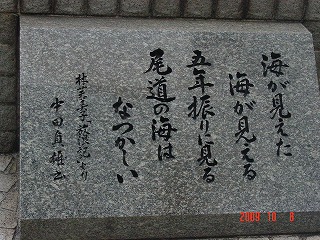 海が見えた
海が見える
五年振りに見る
尾道の海は
なつかしい
林芙美子放浪記より
2009 10 8